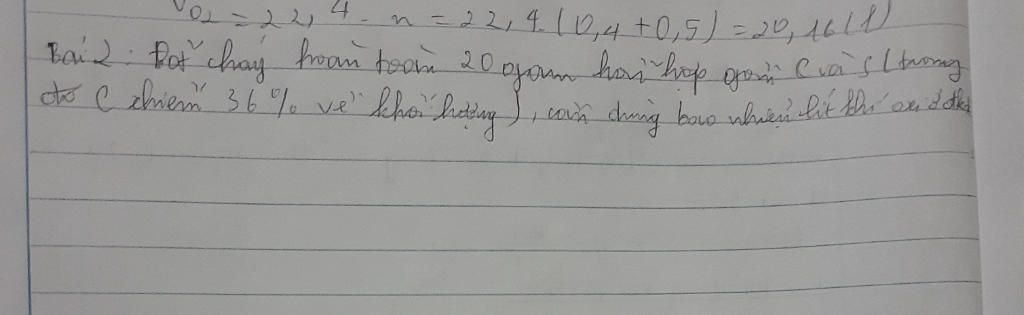 VO2 = 22,4. n = 22,4.(0,4+0,5) = 20,16(l)
Bài 2: Đốt cháy hoàn toàn 20 gam hỗn hợp gồm C và S (trong
đó C chiếm 36% về khối lượng), cần dùng bao nhiêu lít khí oxi ở đktc